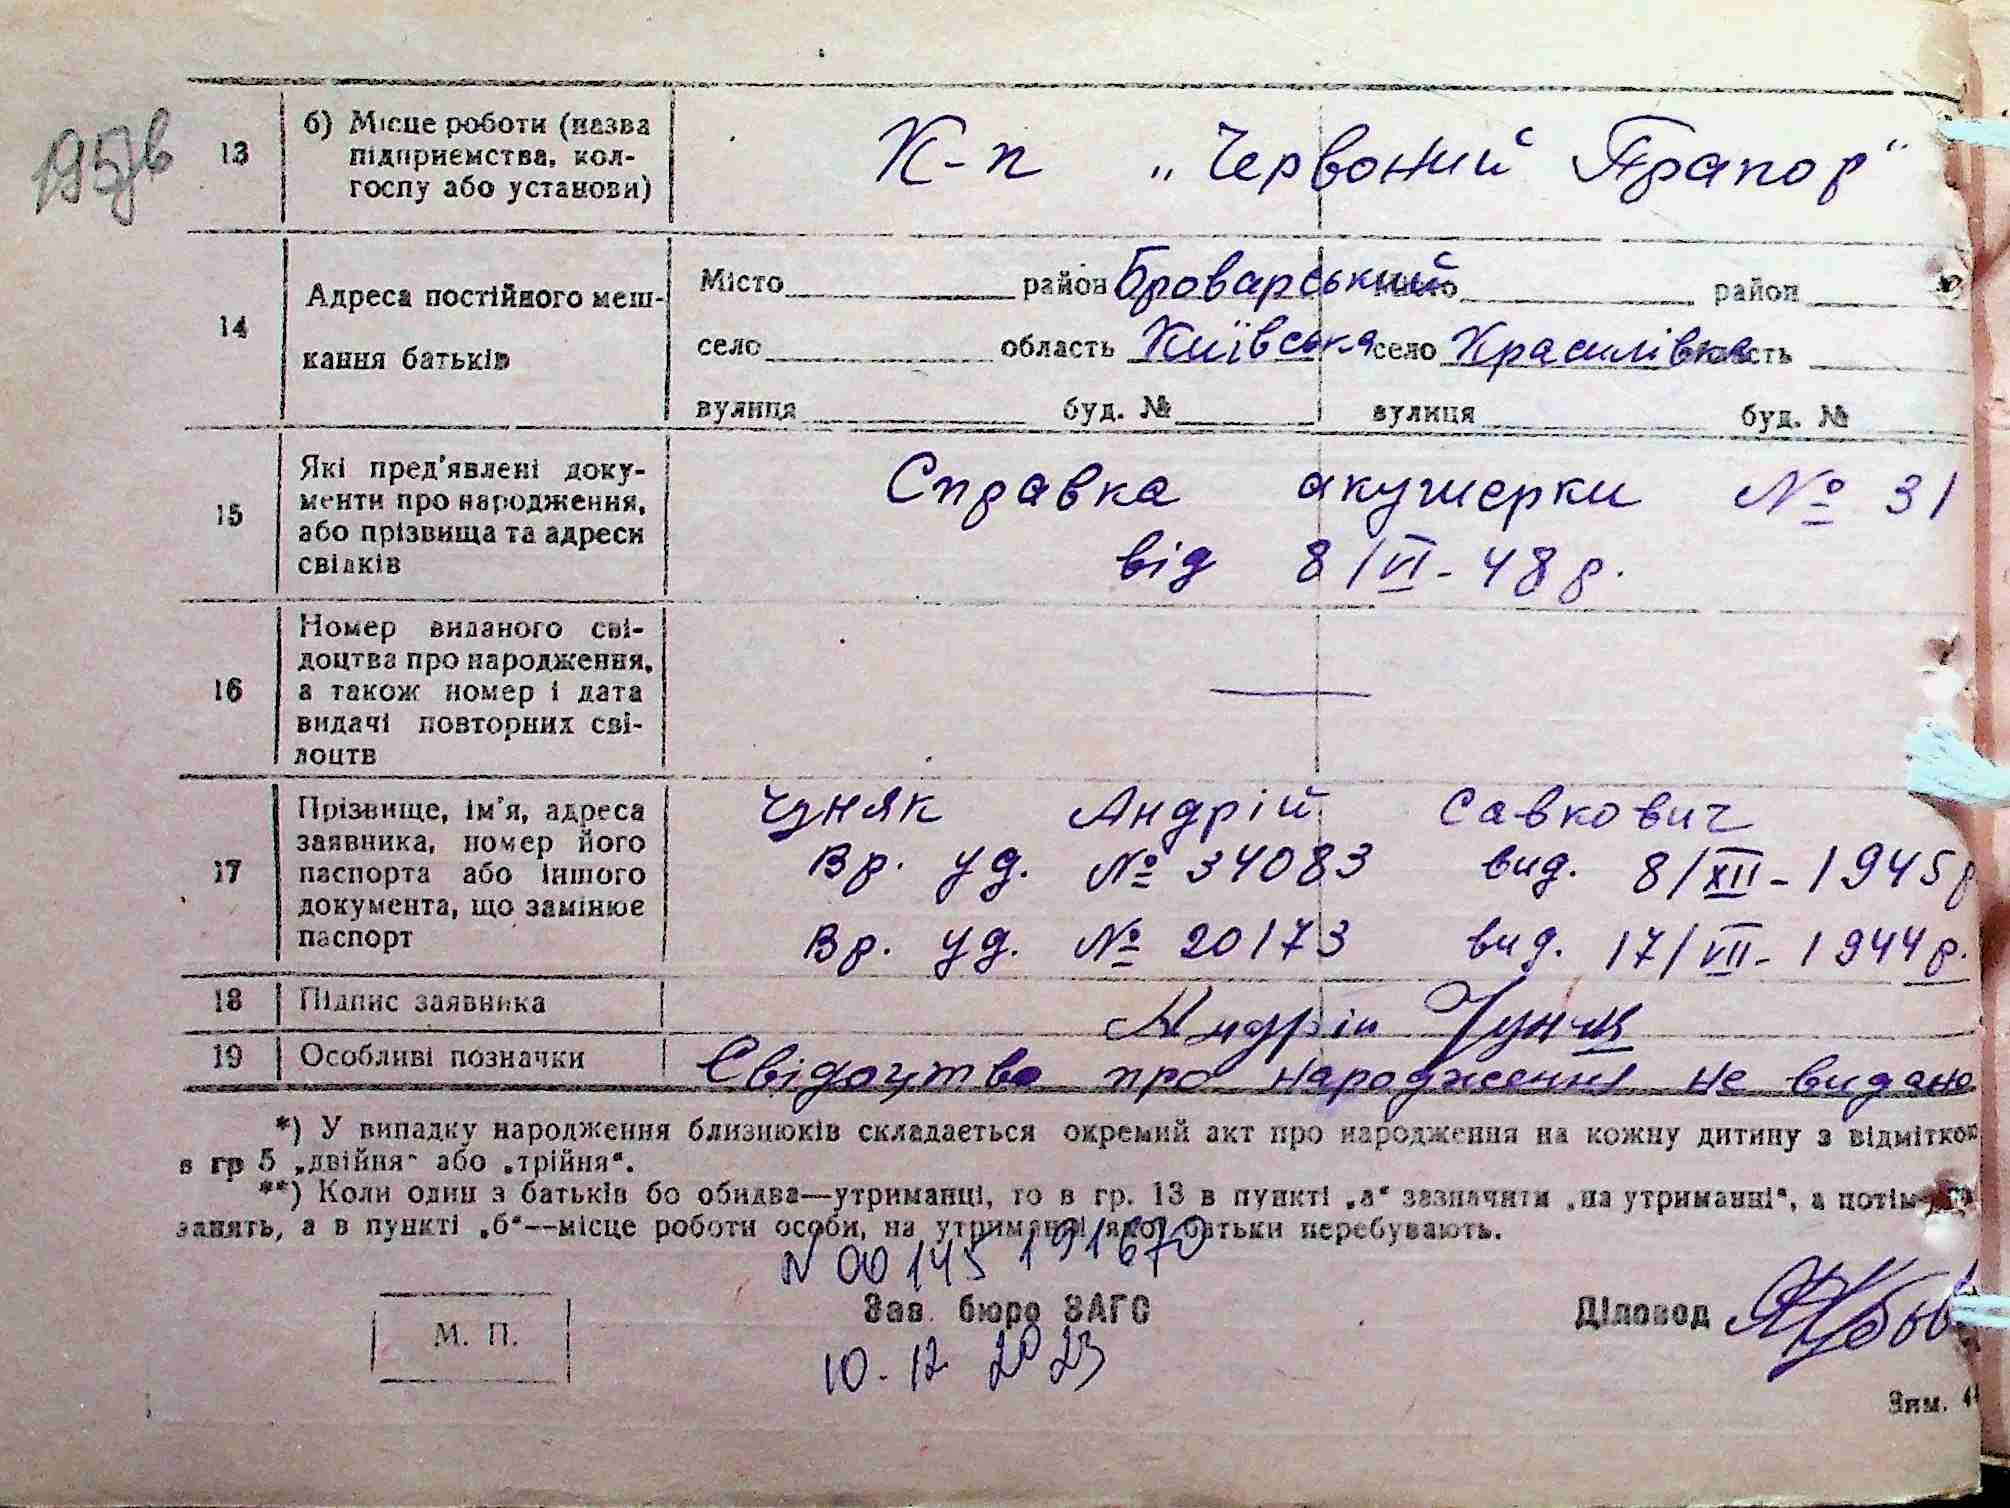 195зв
13 б) Місце роботи (назва
підприємства, кол-
госпу або установи)
К-п „Червоний Прапор"
14 Адреса постійного меш-
кання батьків
Місто район Броварський Місто район
село область Київська село Красилівка область
вулиця буд. № вулиця буд. №
15 Які пред'явлені доку-
менти про народження,
або прізвища та адреси
свідків
Справка акушерки № 31
від 8/VI-48 р.
16 Номер виданого сві-
доцтва про народження,
а також номер і дата
видачі повторних сві-
доцтв
—
17 Прізвище, ім'я, адреса
заявника, номер його
паспорта або іншого
документа, що замінює
паспорт
Чуняк Андрій Савкович
Вр. уд. № 34083 вид. 8/XII-1945 р
Вр. уд. № 20173 вид. 17/VII-1944 р.
18 Підпис заявника
Андрій Чуняк
19 Особливі позначки
Свідоцтво про народження не видано
*) У випадку народження близнюків складається окремий акт про народження на кожну дитину з відміткою
в гр 5 „двійня" або „трійня".
**) Коли один з батьків бо обидва—утриманці, то в гр. 13 в пункті „а" зазначити „на утриманні", а потім
занять, а в пункті „б"—місце роботи особи, на утриманні якої батьки перебувають.
N 00145191670
Зав. бюро ЗАГС
Діловод
М. П.
10.12 2023
Зим. 4